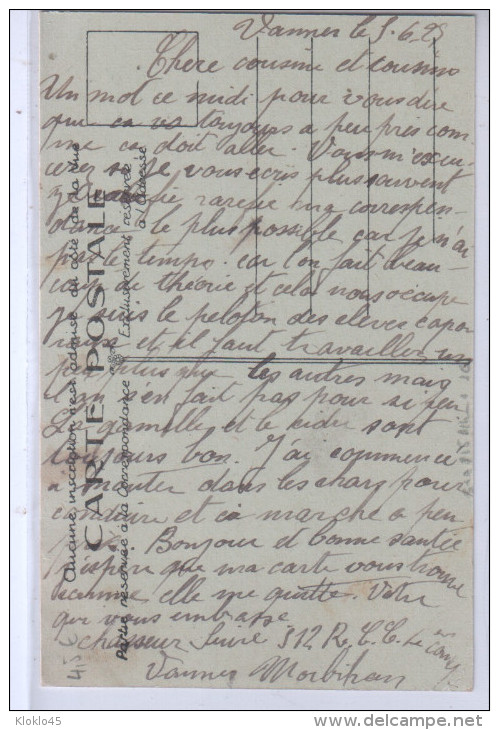 Vannes le 5.6.2
Chere cousine et cousins
Un mot ce midi pour vous dire
que ca va toujours a peu pres com-
me ca doit aller. Vous m'excu-
serez si je vous ecris plus souvent
rarefie ma correspon-
dance le plus possible car je n'ai
pas le temps. car l'on fait beau-
coup de théorie et cela nous occupe
je suis le peloton des eleves capo-
raux et il faut travailler un
peu plus que les autres mais
l'on s'en fait pas pour si peu
La gamelle et le cidre sont
toujours bon. J'ai commence
a monter dans les chars pour
conduire et ca marche a peu
pres. Bonjour et bonne santée
J'espere que ma carte vous trouve
comme elle me quitte. Votre
qui vous embrasse
chasseur 512 R. C. C.
Vannes Morbihan
Aucune inscription n'est admise du côté de la vue
CARTE POSTALE
Partie réservée à la Correspondance
Exclusivement réservée
à l'adresse
Kloklo45